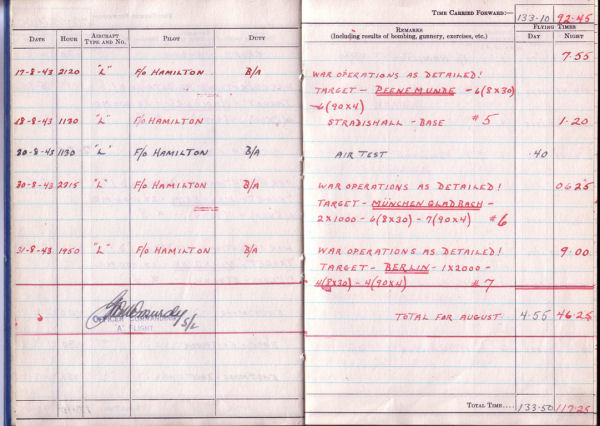 TIME CARRIED FORWARD:— 133-10 92-45
DATE HOUR AIRCRAFT TYPE AND NO. PILOT DUTY REMARKS (Including results of bombing, gunnery, exercises, etc.) FLYING TIMES DAY NIGHT
7.55
17-8-43 2120 "L" F/O HAMILTON B/A WAR OPERATIONS AS DETAILED!
TARGET - PEENEMUNDE - 6(8X30)
-6(90X4)
18-8-43 1130 "L" F/O HAMILTON STRADISHALL - BASE #5 1-20
30-8-43 1130 "L" F/O HAMILTON B/A AIR TEST .40
30-8-43 2215 "L" F/O HAMILTON B/A WAR OPERATIONS AS DETAILED! 0625
TARGET - MÜNCHEN GLADBACH -
2X1000 - 6(8X30) - 7(90X4) #6
31-8-43 1950 "L" F/O HAMILTON B/A WAR OPERATIONS AS DETAILED! 9.00
TARGET - BERLIN - 1X2000 -
4(8X30) - 4(90X4) #7
S/L
OFFICER COMMANDING
"A" FLIGHT
TOTAL FOR AUGUST 4.55 46.25
TOTAL TIME.... 133-50 117-25